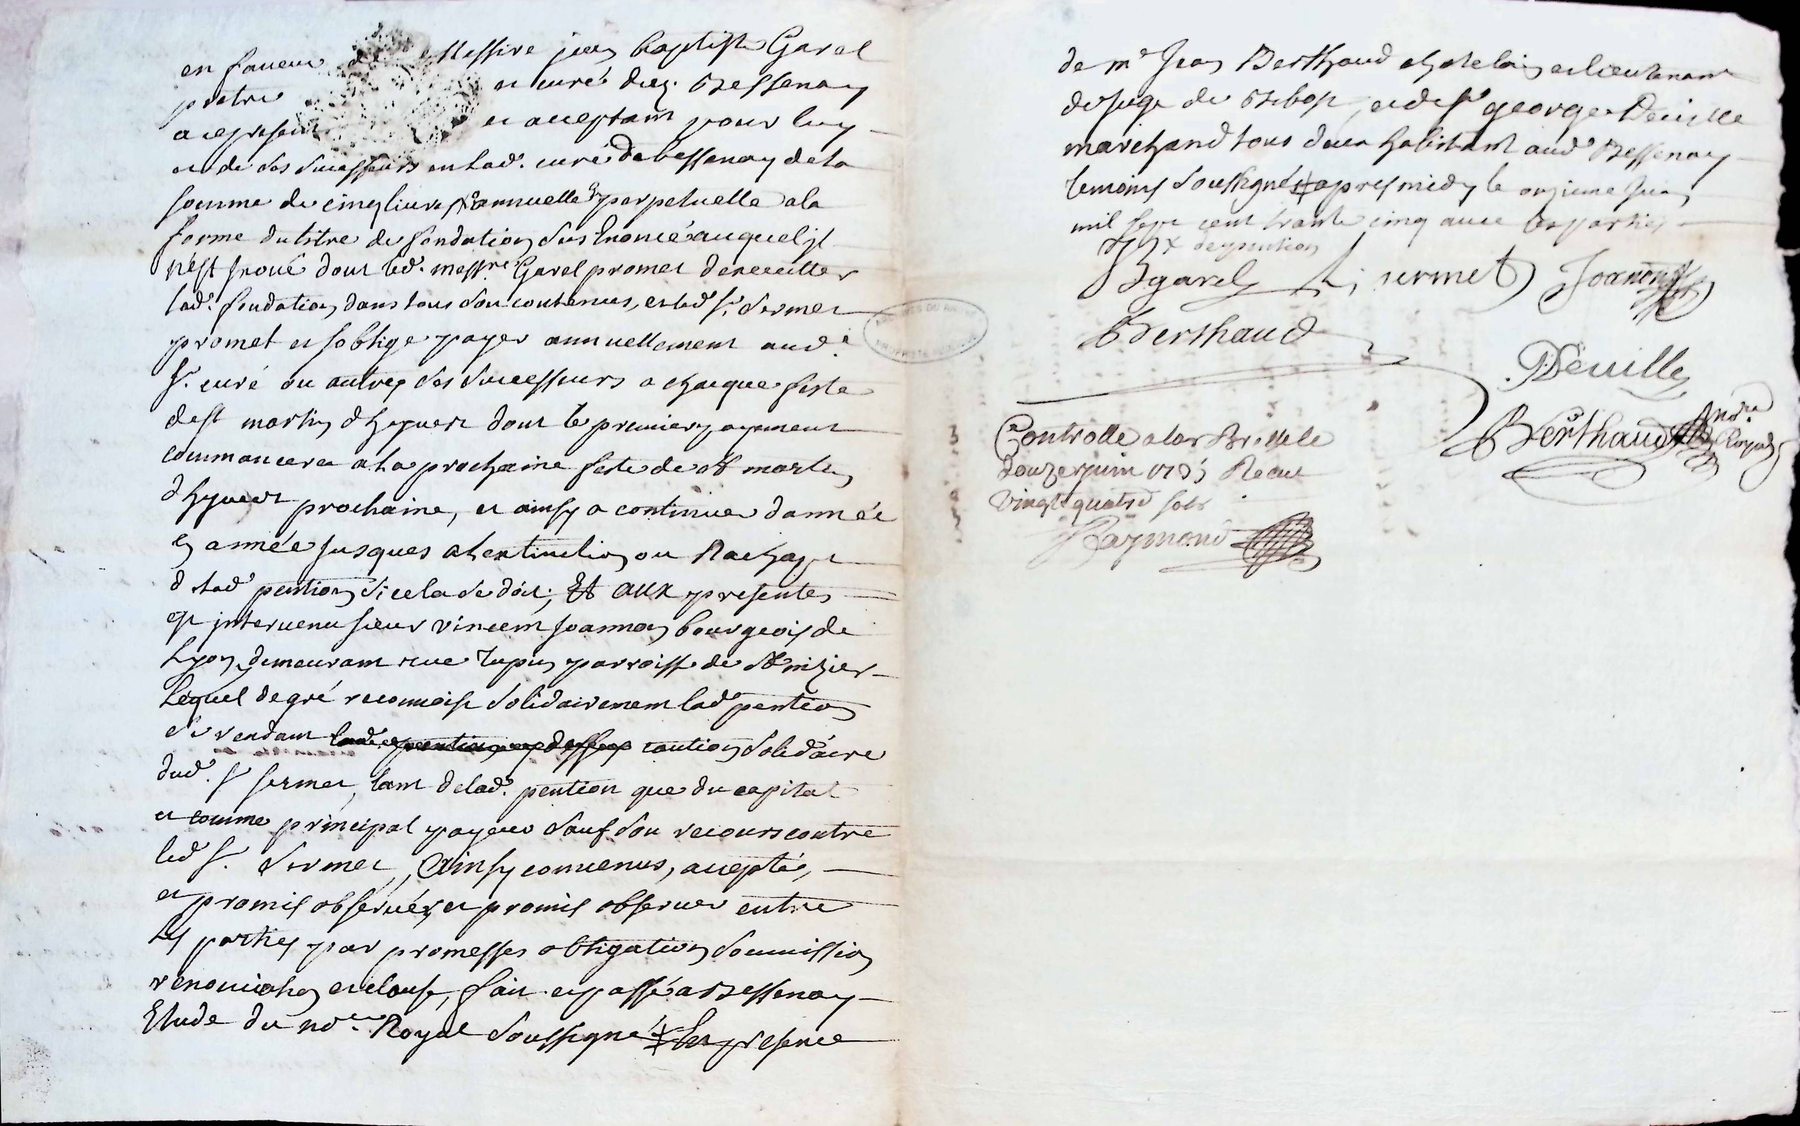 en faueur de Messire jean baptiste Garel
pretre et curé dud. Bessenay
a ce present et acceptant pour luy
et de ses successeurs en lad. curé de bessenay de la
somme de cinq livres annuelle & perpetuelle a la
forme du titre de fondation sus Enoncé auquel jl
n'est jnoué dont led. messre Garel promet
lad. fondation dans tous son contenus, et led Sr. Sermet
promet et soblige payer annuellement aud.
Sr. curé ou autres ses successeurs a chaque feste
de st martin dhyuert dont le premier payement
commancera a la prochaine feste de st martin
dhyuert prochaine, et ainsy a continuer dannée
en année jusques a lextinction ou Rachapt
d lad pention si cela se doit; Et aux presentes
est jnteruenu sieur vincent joannon bourgeois de
Lyon demeurant rue Tupin parroisse de st nizier
Lequel de gré reconnoist solidairement lad pention
se rendant caution solidaire
dud. Sr sermet, tant de lad. pention que du capital
et comme principal payeur sauf son recours contre
led Sr. Sermet, Ainsy conuenus, accepté,
et promis obseruer entre
les parties par promesses obligation soumission
renonciation et clause, fait et passé a Bessenay
Etude du nore. Royal soussigné En presence
de me Jean Berthaud chatelain et lieutenant
de juge de Bibost, et de sr george Deuille
marchand tous deux habitant aud Bessenay
temoins soussignés apres midy le onzieme juin
mil sept cent trante cinq auec les parties
X de pention
Garel Sermet Joannon
Berthaud
Deuille
Berthaud Nore Royal
Controllé a lar Bresle le
douze juin 1735 Recu
vingt quatre sols
Raymond